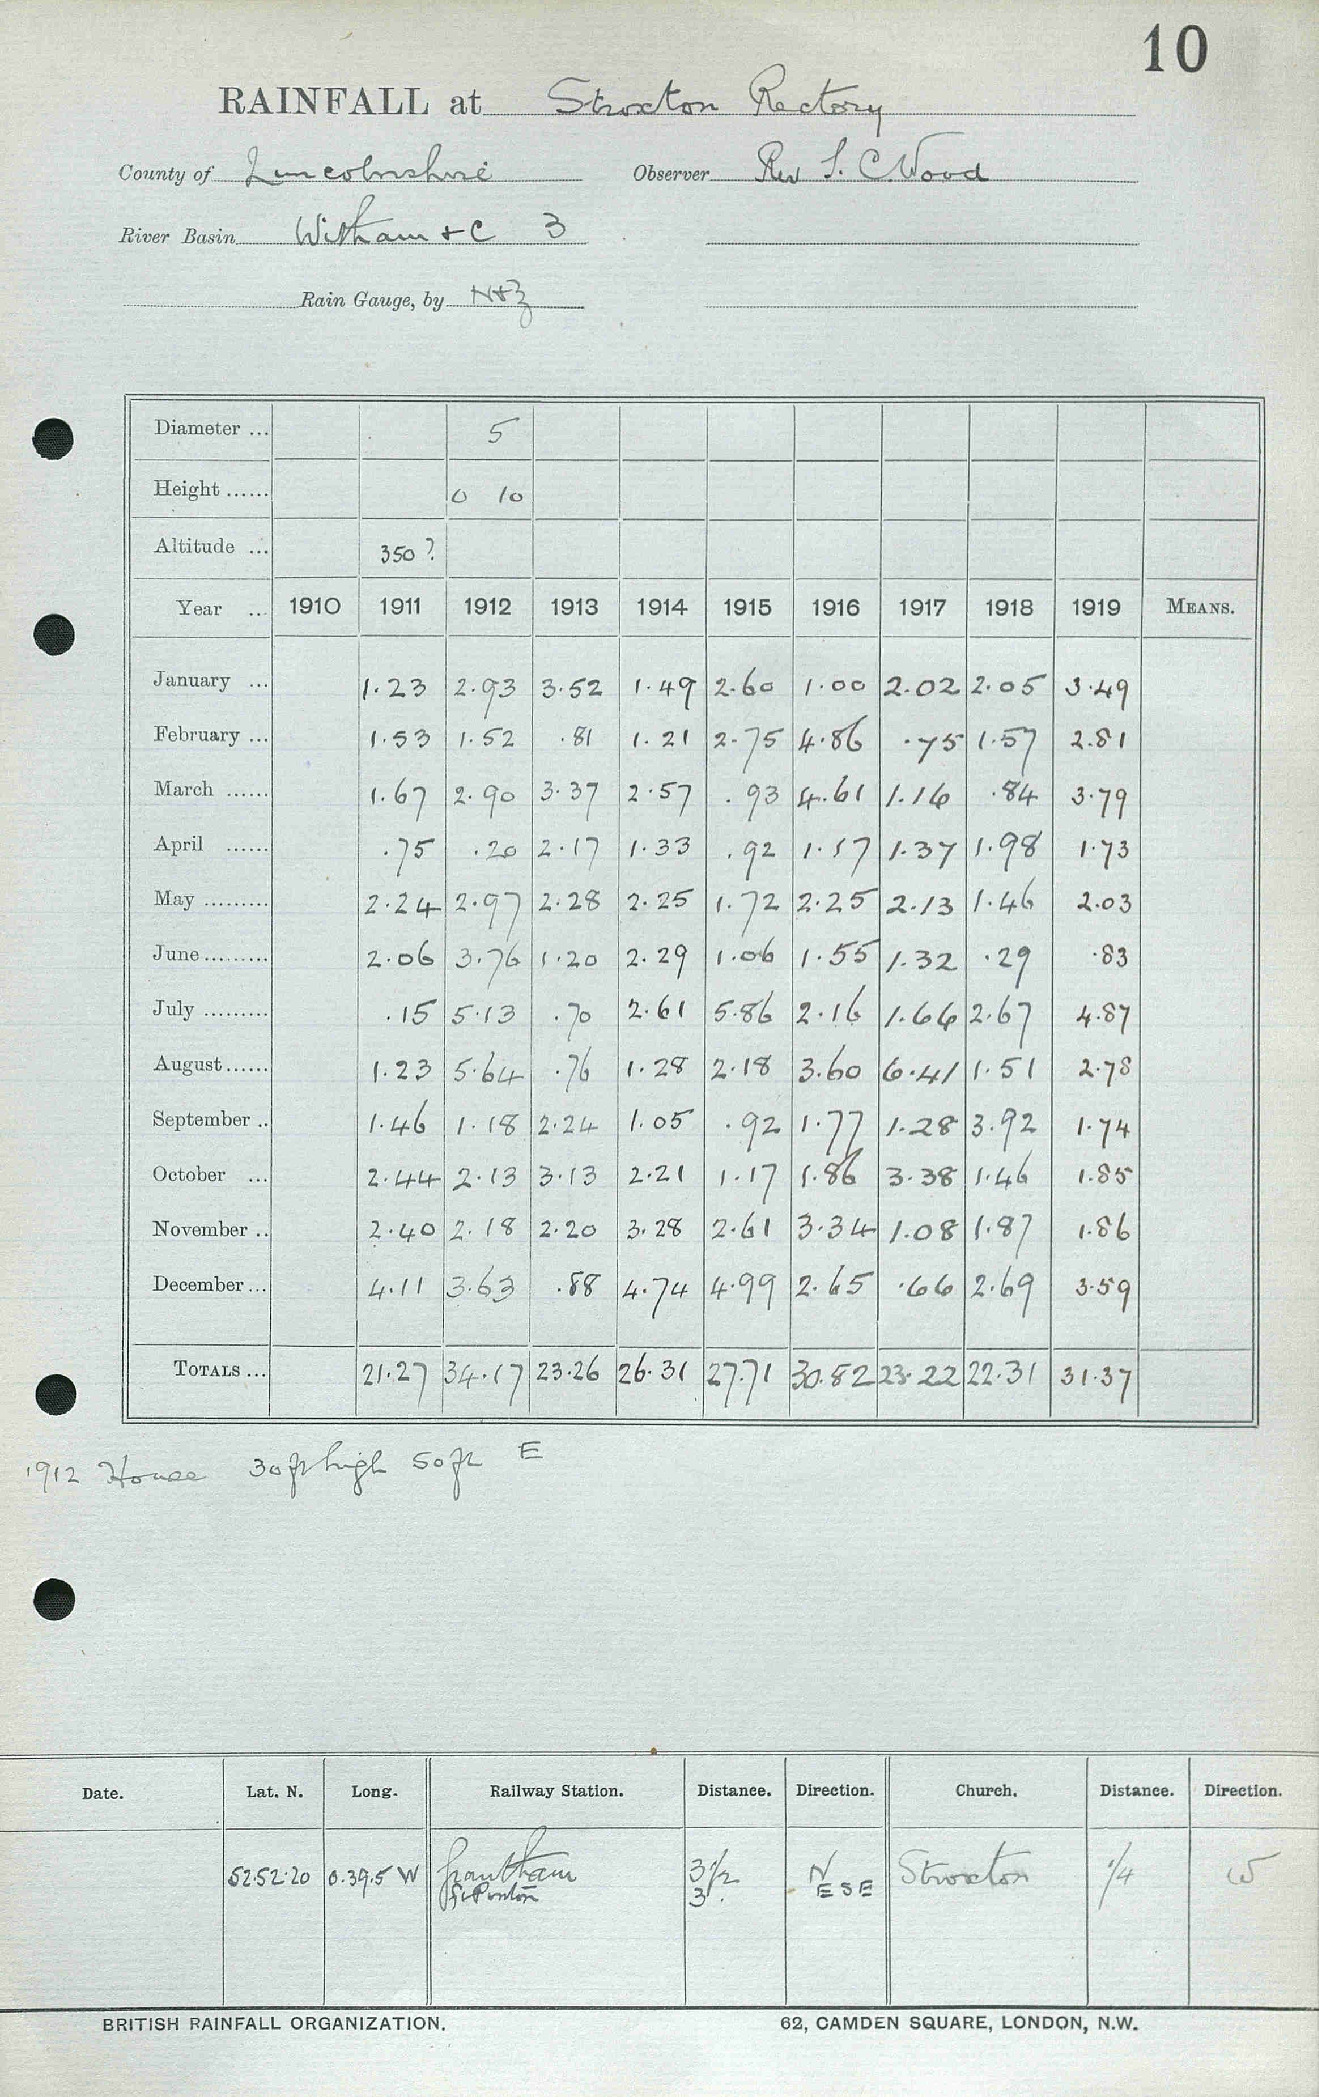 10
RAINFALL at Stroxton Rectory
County of Lincolnshire Observer Rev S. C. Wood
River Basin Witham &c 3
Rain Gauge, by N+Z
Diameter ... 5
Height ...... 0 10
Altitude ... 350?
Year ... 1910 1911 1912 1913 1914 1915 1916 1917 1918 1919 MEANS.
January ... 1.23 2.93 3.52 1.49 2.60 1.00 2.02 2.05 3.49
February ... 1.53 1.52 .81 1.21 2.75 4.86 .75 1.57 2.81
March ...... 1.67 2.90 3.37 2.57 .93 4.61 1.16 .84 3.79
April ...... .75 .20 2.17 1.33 .92 1.17 1.37 1.98 1.73
May ......... 2.24 2.97 2.28 2.25 1.72 2.25 2.13 1.46 2.03
June ......... 2.06 3.76 1.20 2.29 1.06 1.55 1.32 .29 .83
July ......... .15 5.13 .70 2.61 5.86 2.16 1.66 2.67 4.87
August ...... 1.23 5.64 .76 1.28 2.18 3.60 6.41 1.51 2.78
September .. 1.46 1.18 2.24 1.05 .92 1.77 1.28 3.92 1.74
October ... 2.44 2.13 3.13 2.21 1.17 1.86 3.38 1.46 1.85
November .. 2.40 2.18 2.20 3.28 2.61 3.34 1.08 1.87 1.86
December ... 4.11 3.63 .88 4.74 4.99 2.65 .66 2.69 3.59
TOTALS ... 21.27 34.17 23.26 26.31 27.71 30.82 23.22 22.31 31.37
1912 House 30 ft high 50 ft E
Date. Lat. N. Long. Railway Station. Distance. Direction. Church. Distance. Direction.
52.52.20 0.39.5 W Grantham 3 1/2 N Stroxton 1/4 W
Gt Ponton 3 ESE
BRITISH RAINFALL ORGANIZATION. 62, CAMDEN SQUARE, LONDON, N.W.